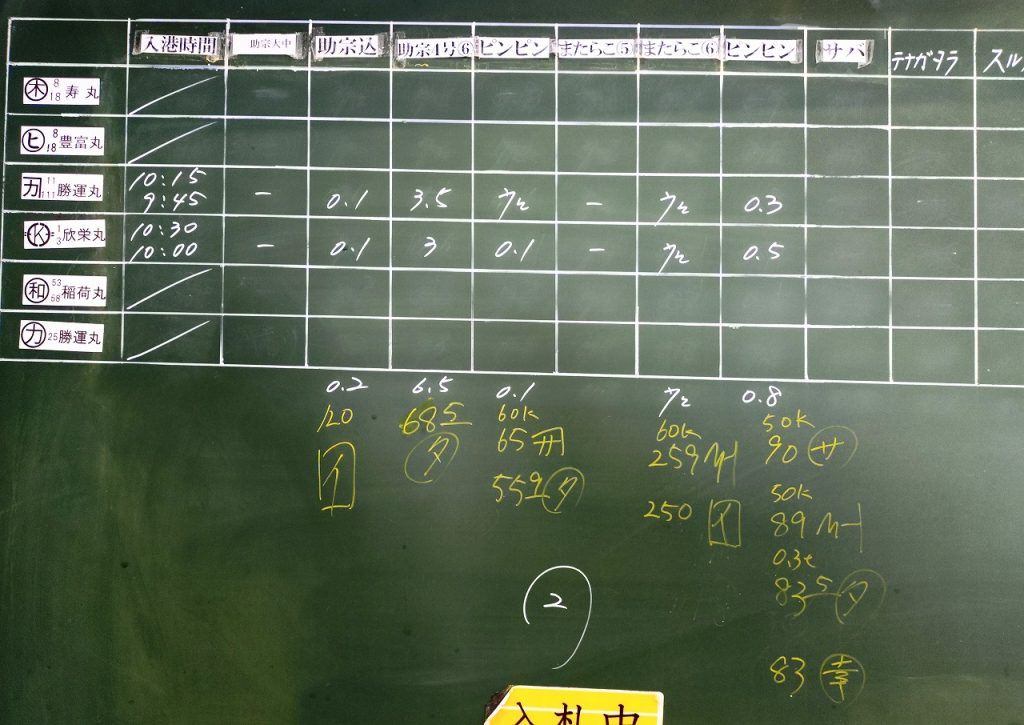 入港時間 助宗大中 助宗込 助宗4号⑥ ピンピン またらこ⑤ またらこ⑥ ピンピン サバ テナガダラ スル
木 8 18 寿丸
ヒ 8 18 豊富丸
カ 11 111 勝運丸 10:15 9:45 - 0.1 3.5 - 0.3
K 1 3 欣栄丸 10:30 10:00 - 0.1 3 0.1 - 0.5
和 53 58 稲荷丸
カ 25 勝運丸
0.2 6.5 0.1 0.8
120 685 60K 60K 50K
イ タ 65 サ 259 90 サ
559 タ 250 イ 50K
89
0.3t
2 835 タ
83 幸
入札中